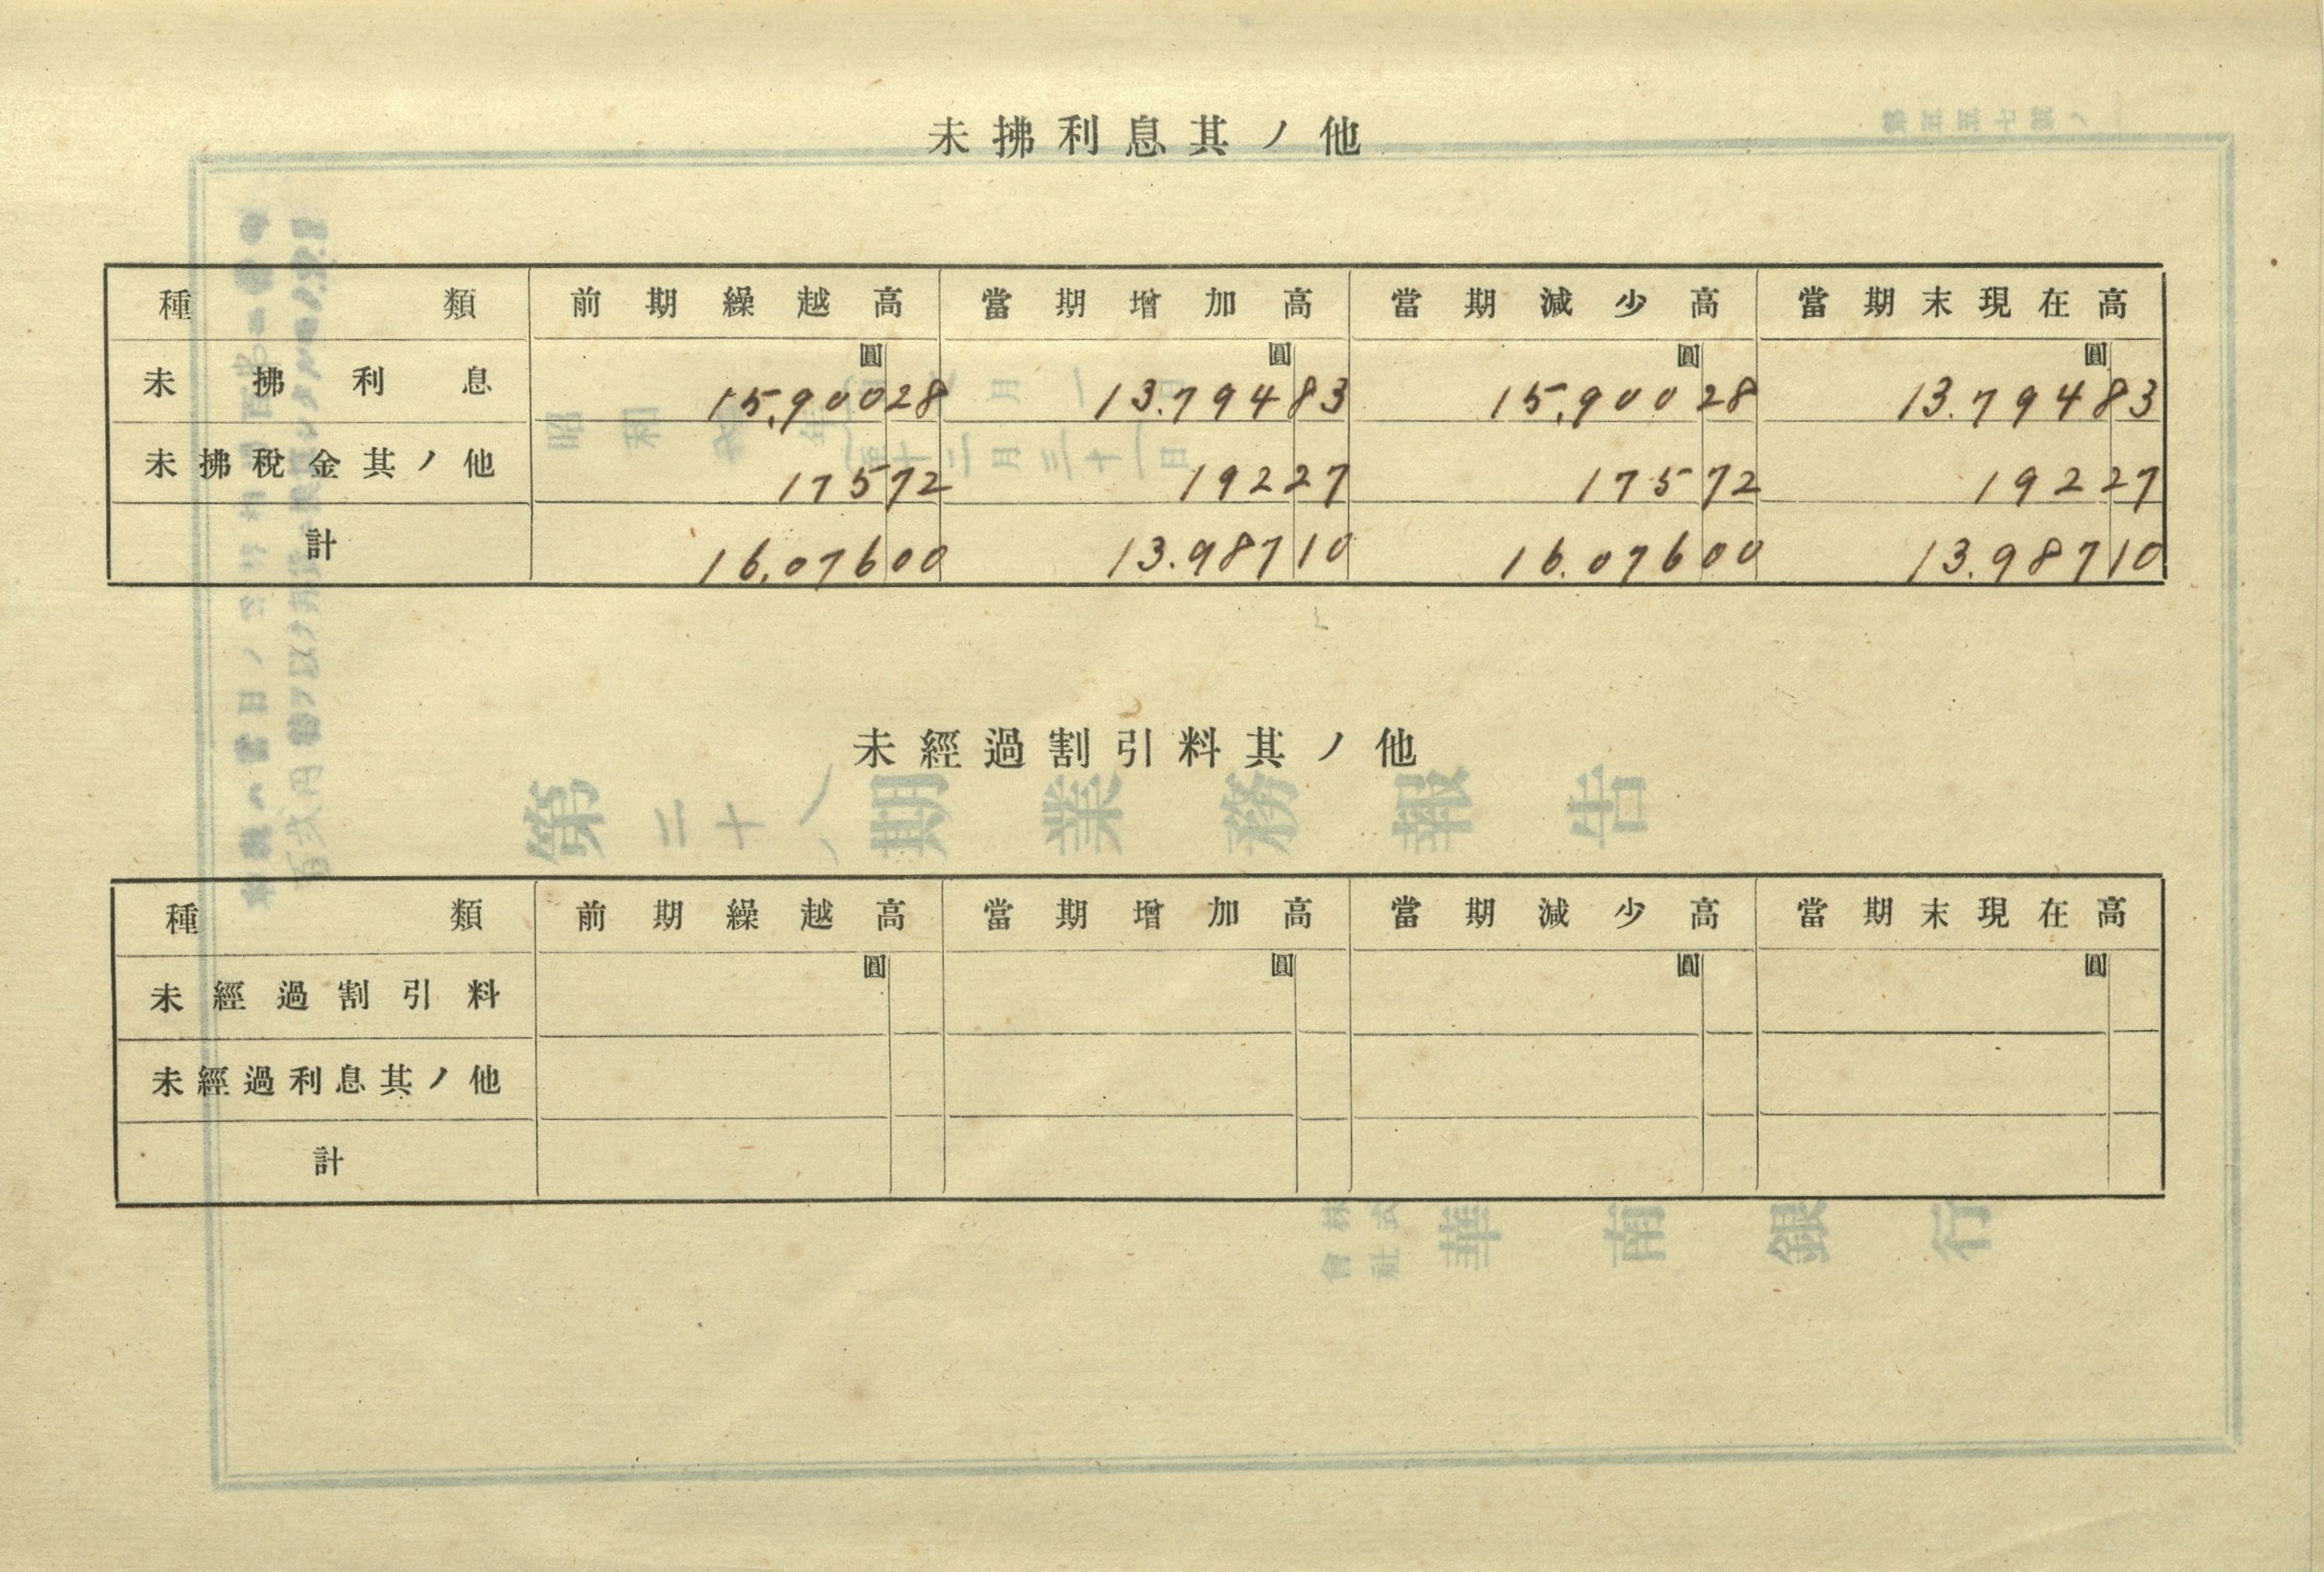 未拂利息其ノ他
種類 前期繰越高 當期增加高 當期減少高 當期末現在高
圓 圓 圓 圓
未拂利息 15,900 28 13.794 83 15,900 28 13.794 83
未拂稅金其ノ他 175 72 192 27 175 72 192 27
計 16,076 00 13.987 10 16.076 00 13.987 10
未經過割引料其ノ他
種類 前期繰越高 當期增加高 當期減少高 當期末現在高
圓 圓 圓 圓
未經過割引料
未經過利息其ノ他
計
第二十八期業務報告
株式會社 華南銀行